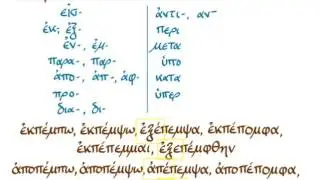 εἰσ-
ἐκ; ἐξ-
ἐν-, ἐμ-
παρα-, παρ-
ἀπο-, ἀπ-, ἀφ-
προ-
δια-, δι-
ἀντι-, αν-
περι
μετα
ὑπο
κατα
ὑπερ
ἐκπέμπω, ἐκπέμψω, ἐξέπεμψα, ἐκπέπομφα,
ἐκπέπεμμαι, ἐξεπέμφθην
ἀποπέμπω, ἀποπέμψω, ἀπέπεμψα, ἀποπέπομφα,